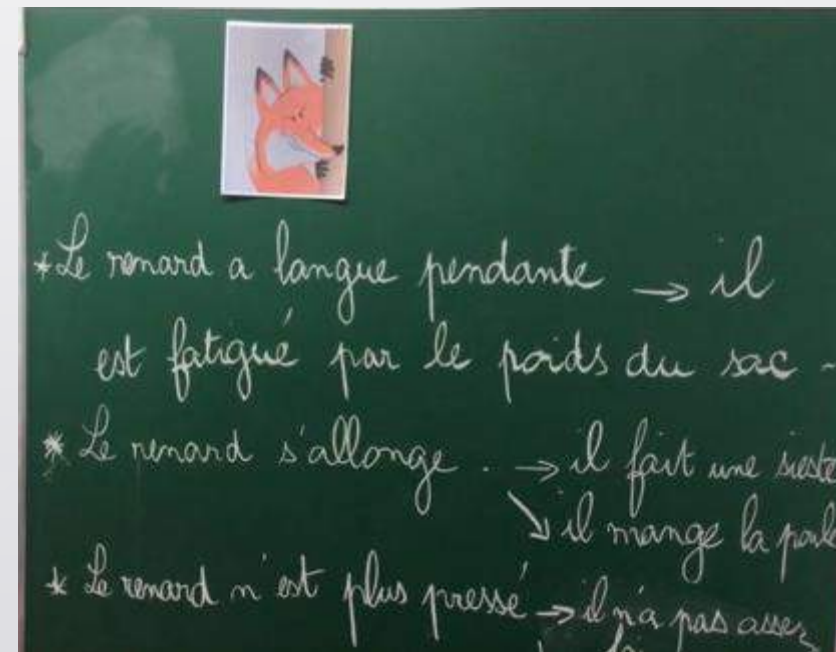 * Le renard a langue pendante → il
est fatigué par le poids du sac -
* Le renard s'allonge. → il fait une sieste
↘ il mange la poule
* Le renard n'est plus pressé → il n'a pas assez